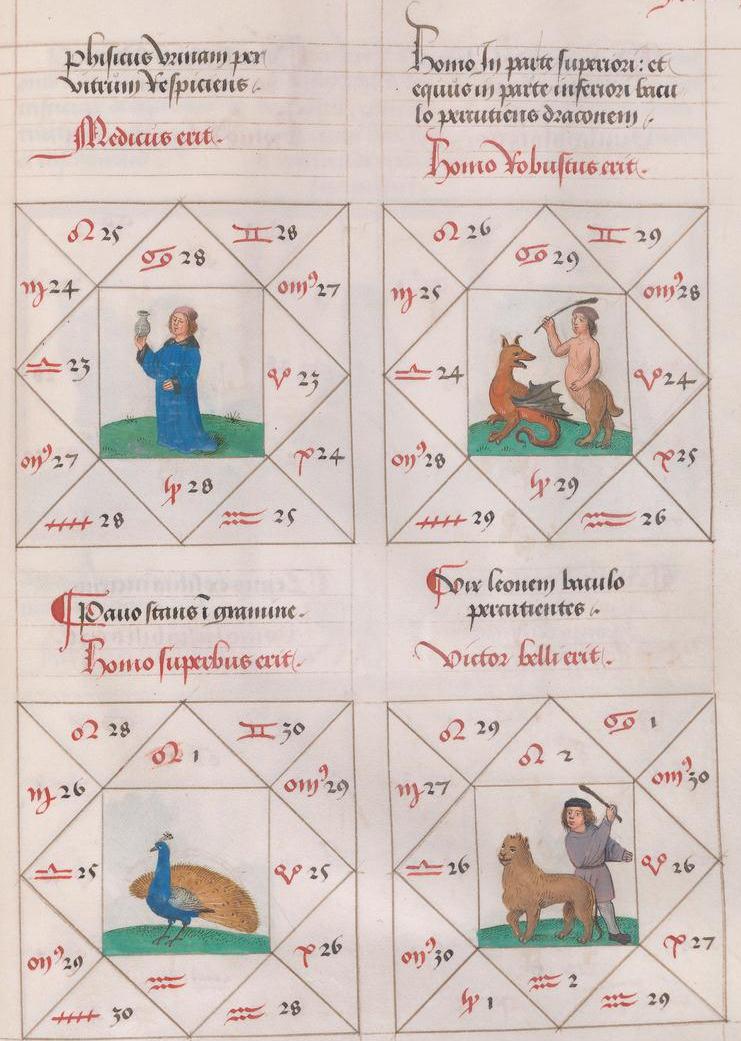 phisicus vrinam per
vitrum Respiciens
Medicus erit
♌ 25
♋ 28
♊ 28
♍ 24
27
♎ 23
♈ 23
27
24
♑ 28
28
♒ 25
Homo In parte superiori: et
equus in parte inferiori bacu
lo percutiens draconem
Homo Robustus erit
♌ 26
♋ 29
♊ 29
♍ 25
28
♎ 24
♈ 24
28
25
♑ 29
29
♒ 26
Pauo stans ī gramine
Homo superbus erit
♌ 28
♌ 1
♊ 30
♍ 26
29
♎ 25
♈ 25
29
26
♒
30
♒ 28
Vir leonem baculo
percutientes
Victor belli erit
♌ 29
♌ 2
♋ 1
♍ 27
30
♎ 26
♈ 26
30
27
♒ 2
♑ 1
♒ 29